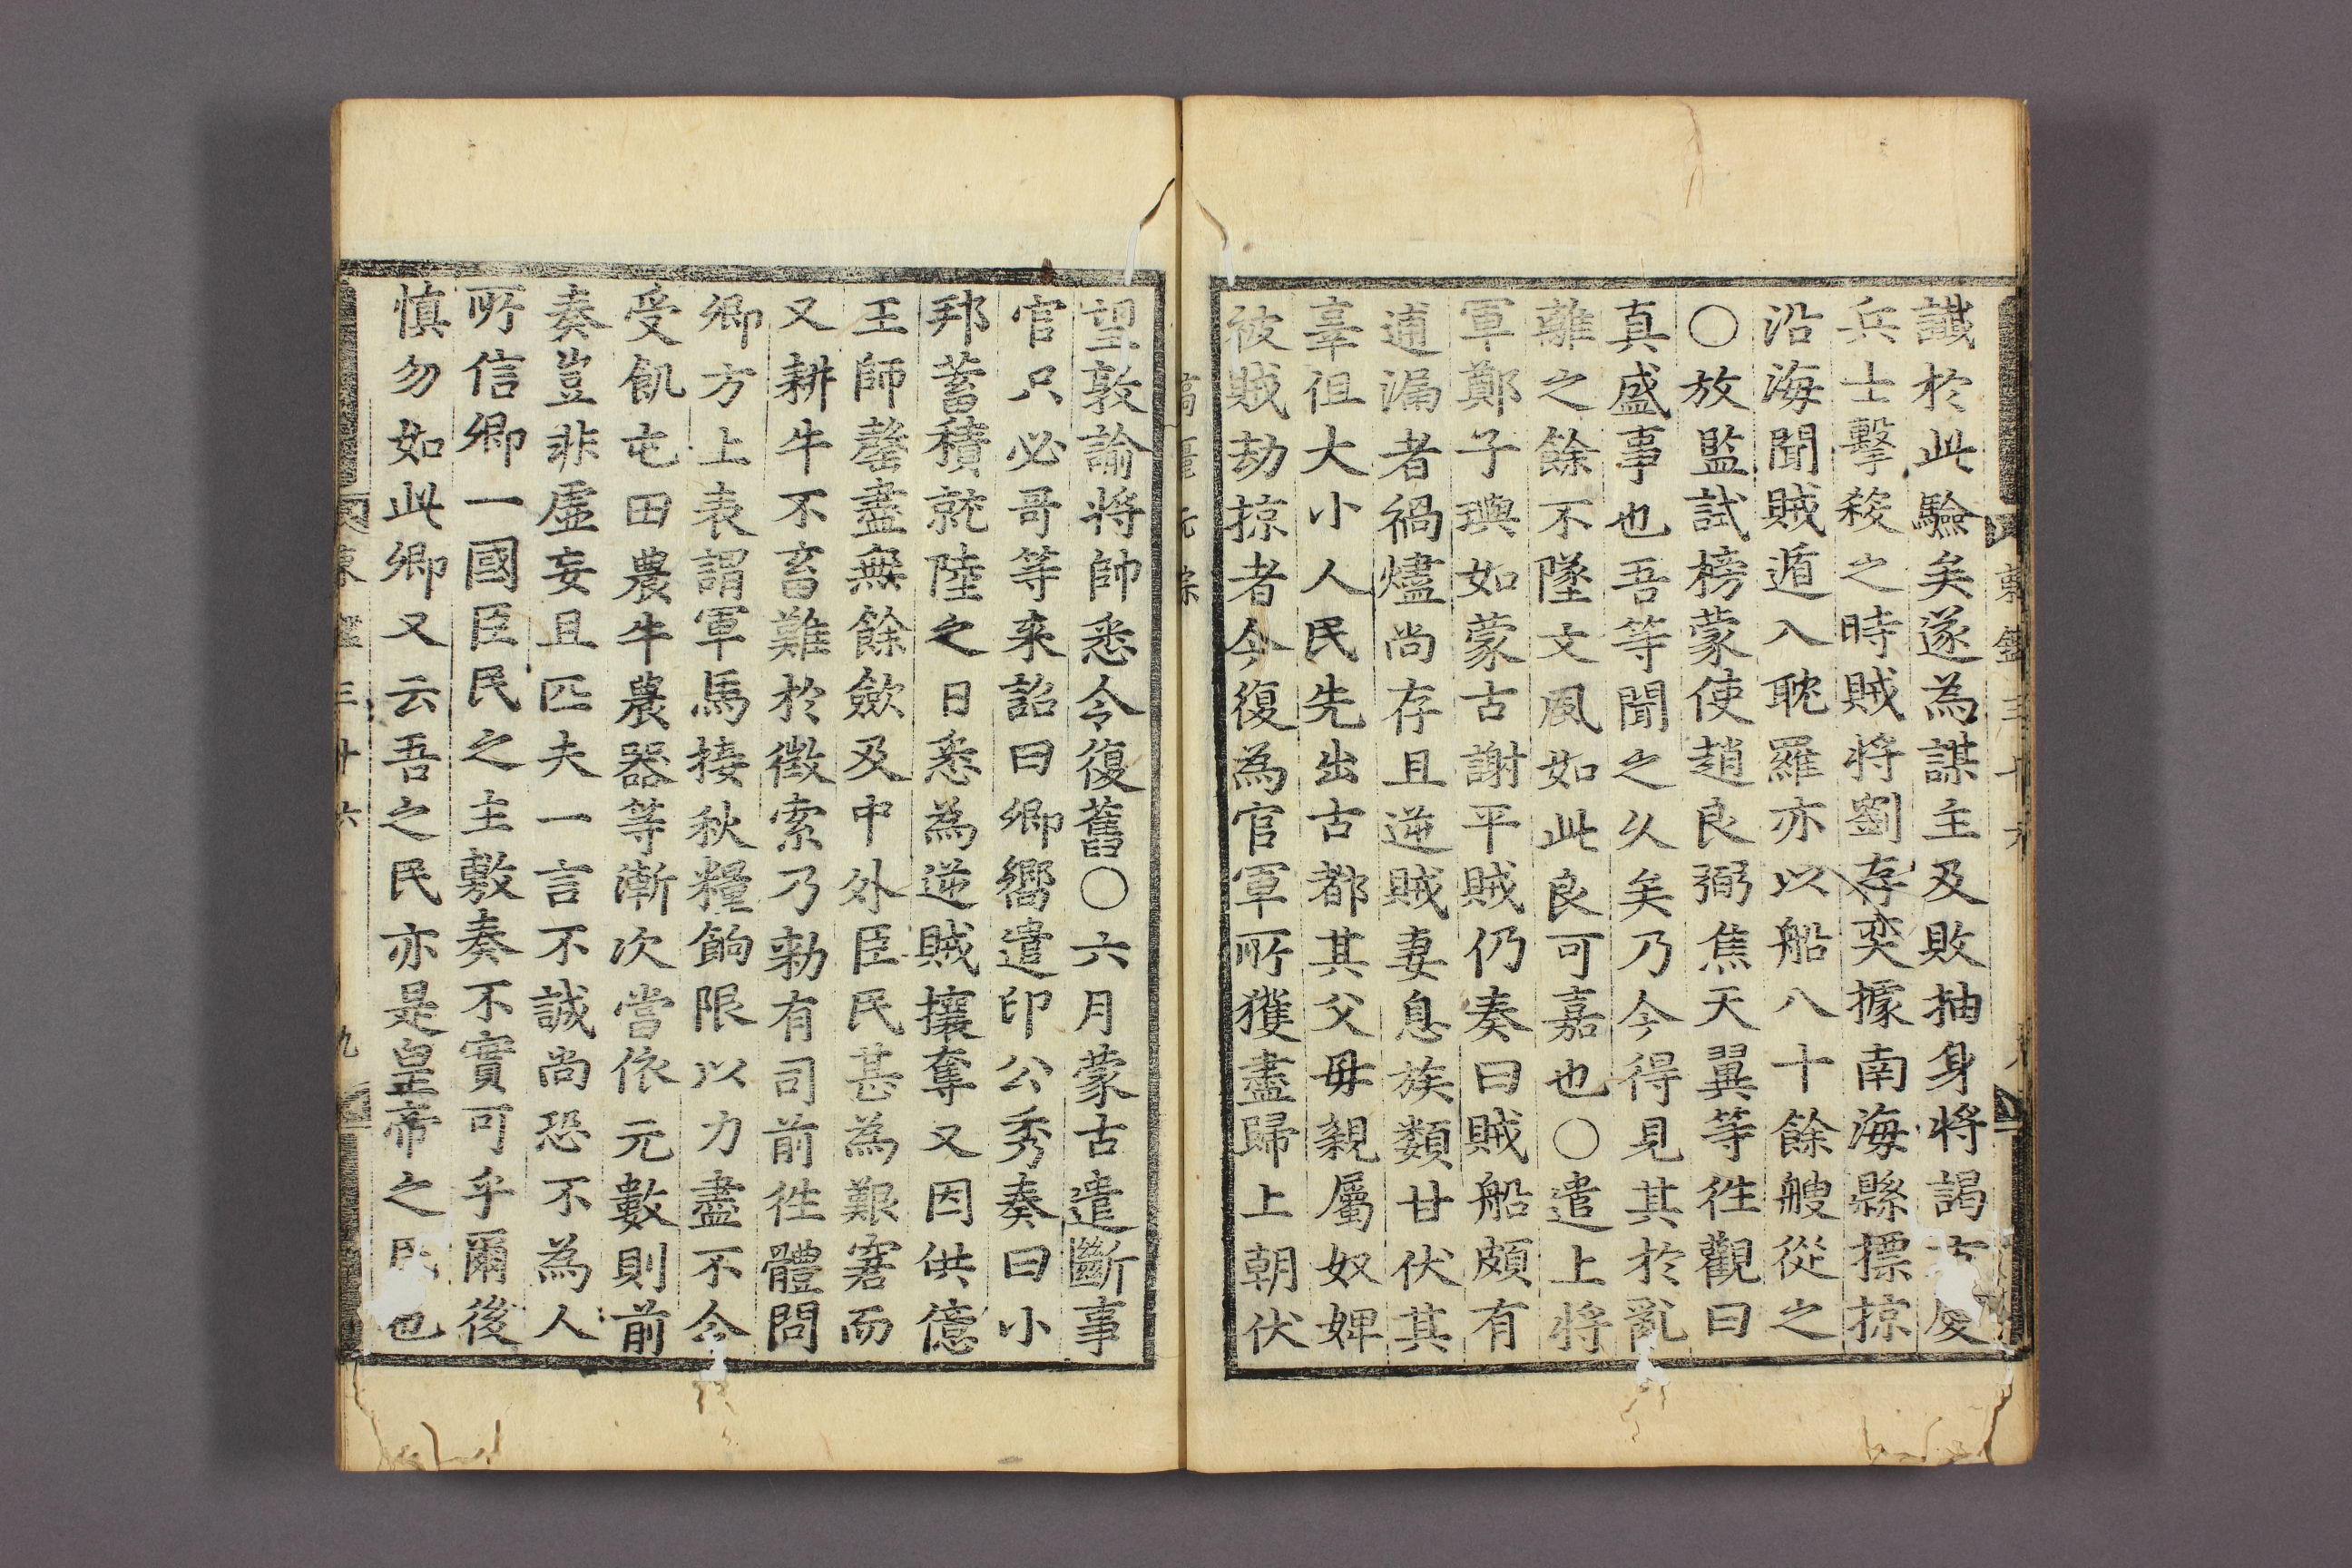 讖於此驗矣遂為謀主及敗抽身將謁古
兵士擊殺之時賊將劉存奕據南海縣摽掠
沿海聞賊遁入耽羅亦以船八十餘艘從之
○放監試榜蒙使趙良弼焦天翼等徃觀曰
真盛事也吾等聞之久矣乃今得見其於亂
離之餘不墜文風如此良可嘉也○遣上將
軍鄭子璵如蒙古謝平賊仍奏曰賊船頗有
逋漏者禍燼尚存且逆賊妻息族類甘伏其
辜徂大小人民先出古都其父母親屬奴婢
被賊劫掠者今復為官軍所獲盡歸上朝伏
望敦諭將帥悉令復舊○六月蒙古遣斷事
官只必哥等来詔曰卿嚮遣印公秀奏曰小
邦蓄積就陸之日悉為逆賊攘奪又因供億
王師罄盡無餘斂及中外臣民甚為艱窘而
又耕牛不畜難於徵索乃勑有司前徃體問
卿方上表謂軍馬接秋糧餉限以力盡不令
受飢屯田農牛農器等漸次當依元數則前
奏豈非虛妄且匹夫一言不誠尚恐不為人
所信卿一國臣民之主敷奏不實可乎爾後
慎勿如此卿又云吾之民亦是皇帝之民也
三十六 九